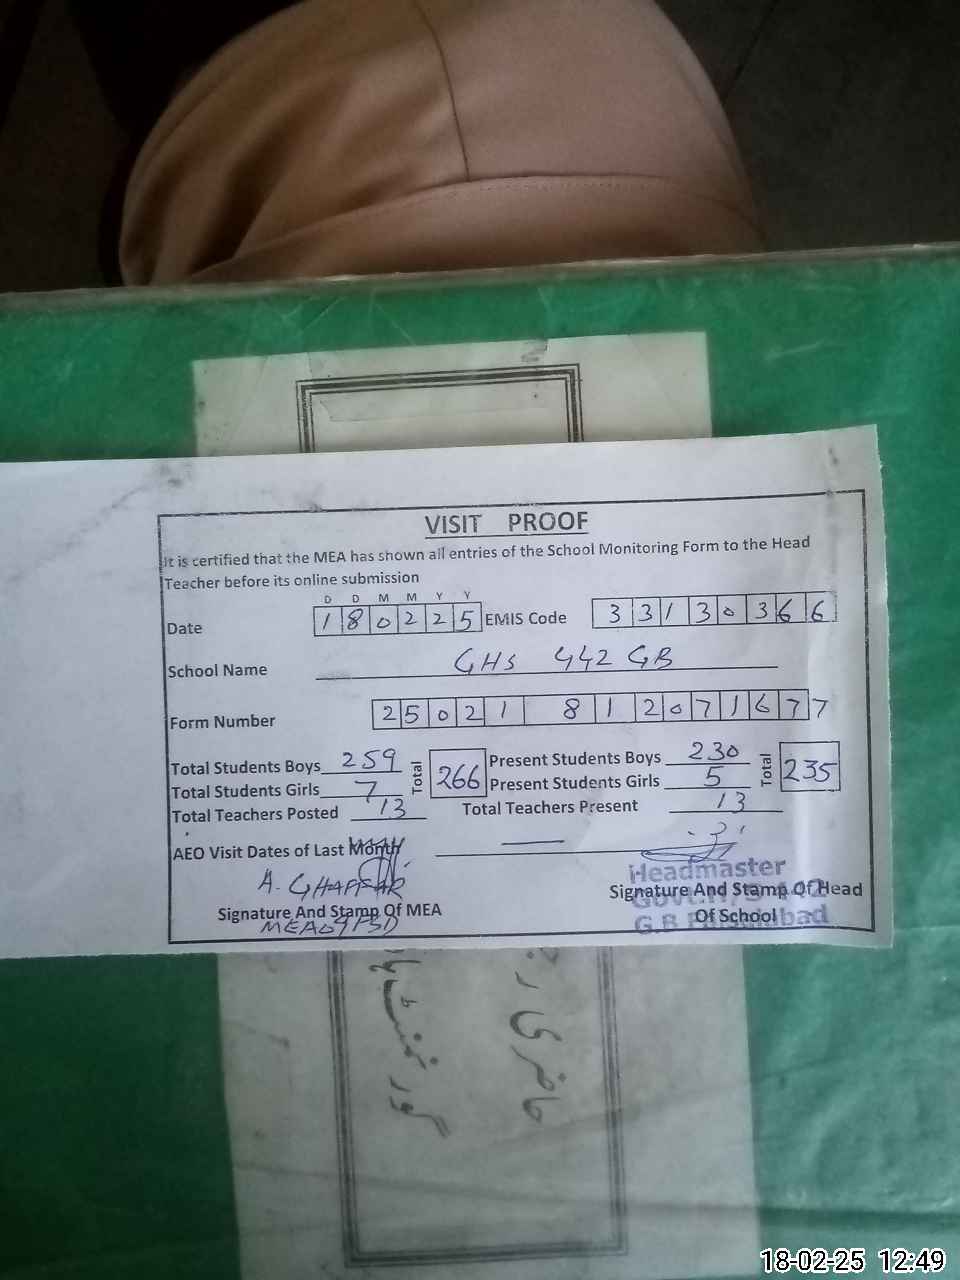 VISIT PROOF
It is certified that the MEA has shown all entries of the School Monitoring Form to the Head
Teacher before its online submission
D D M M Y Y
Date 180225 EMIS Code 33130366
School Name GHS 442 GB
Form Number 25021 81207167 7
Total Students Boys 259 Total 266 Present Students Boys 230 Total 235
Total Students Girls 7 Present Students Girls 5
Total Teachers Posted 13 Total Teachers Present 13
AEO Visit Dates of Last Month —
A. GHAFFAR
Headmaster
Signature And Stamp Of MEA Signature And Stamp Of Head
MEA04 FSD Of School
G.B Faisalabad
حاضری
گورنمنٹ
18-02-25 12:49